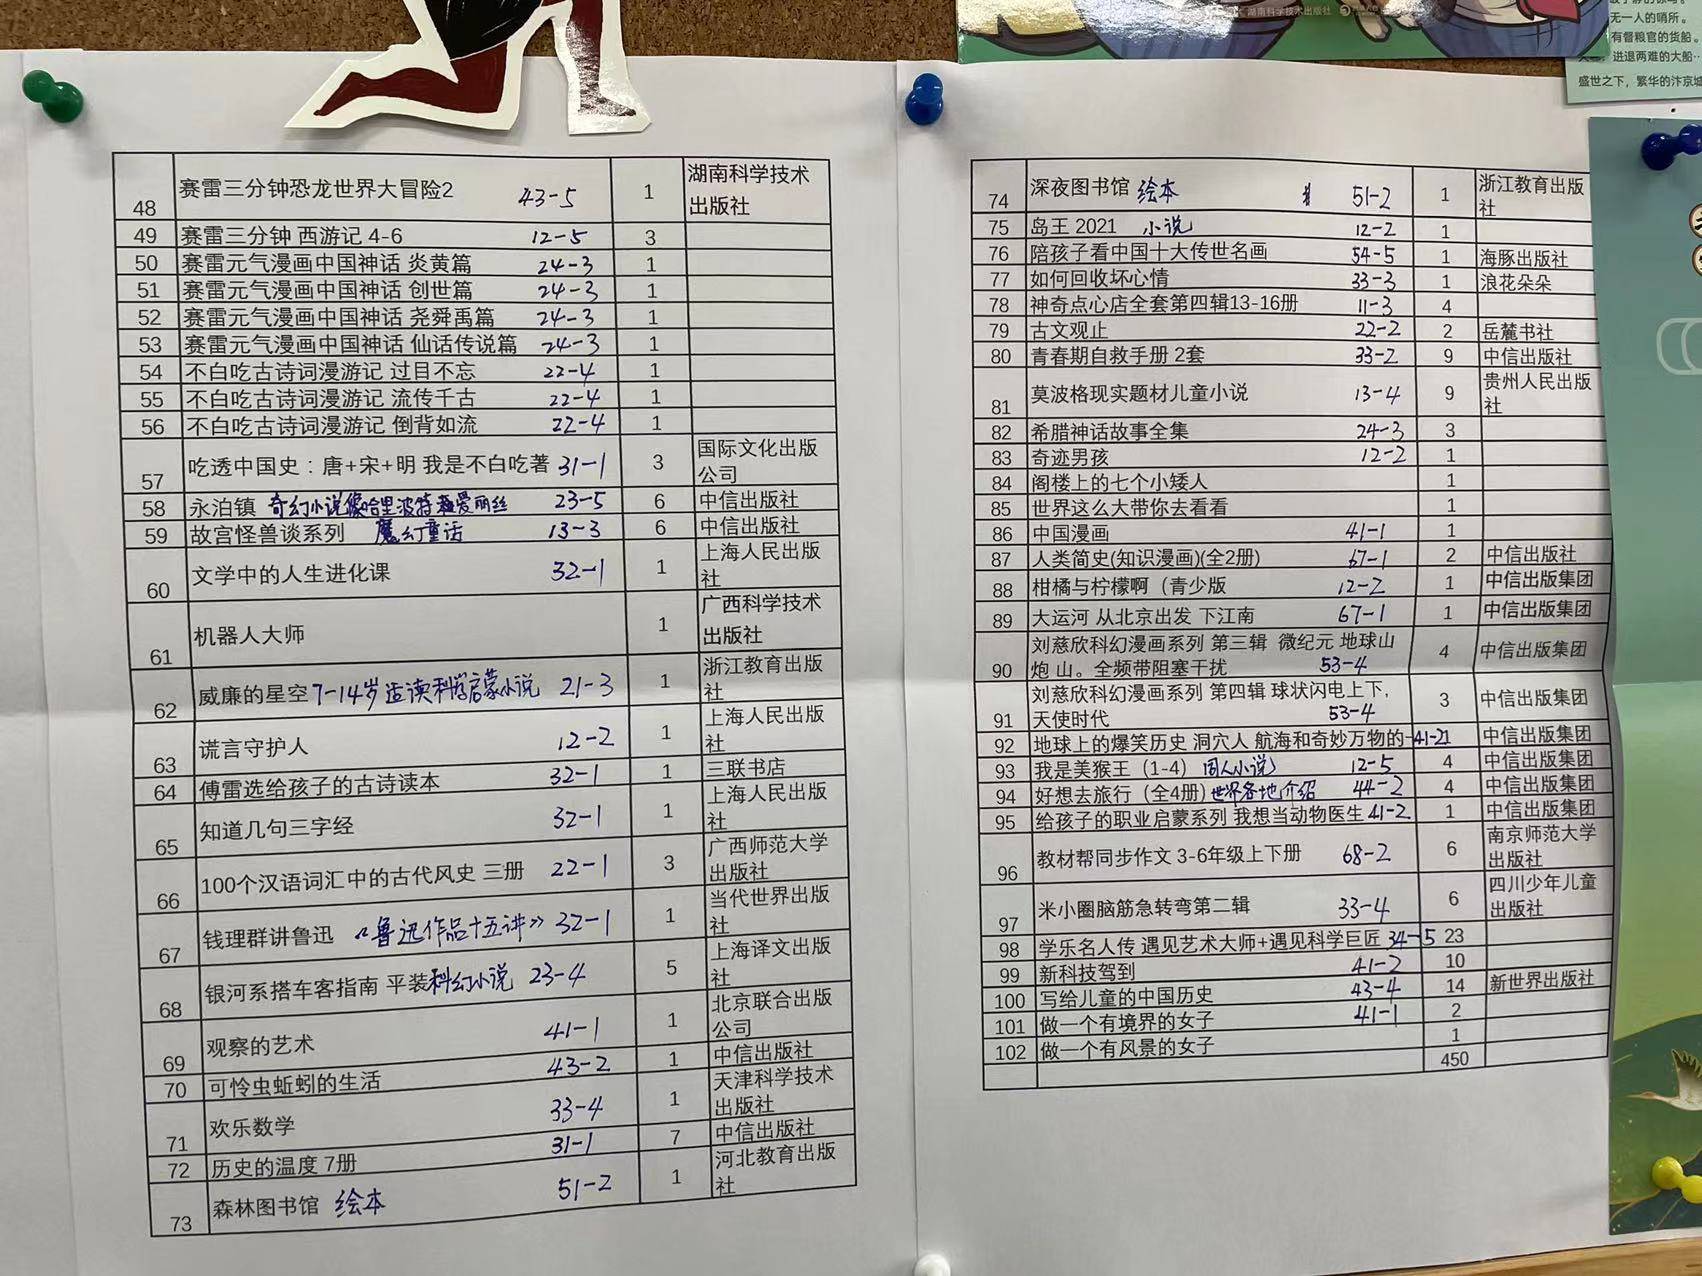 湖南科学技术出版社
无一人的哨所。
有督粮官的货船。
进退两难的大船…
盛世之下，繁华的汴京城
48 赛雷三分钟恐龙世界大冒险2 43-5 1 湖南科学技术出版社
49 赛雷三分钟 西游记 4-6 12-5 3
50 赛雷元气漫画中国神话 炎黄篇 24-3 1
51 赛雷元气漫画中国神话 创世篇 24-3 1
52 赛雷元气漫画中国神话 尧舜禹篇 24-3 1
53 赛雷元气漫画中国神话 仙话传说篇 24-3 1
54 不白吃古诗词漫游记 过目不忘 22-4 1
55 不白吃古诗词漫游记 流传千古 22-4 1
56 不白吃古诗词漫游记 倒背如流 22-4 1
57 吃透中国史：唐+宋+明 我是不白吃著 31-1 3 国际文化出版公司
58 永泊镇 奇幻小说像哈里波特 爱丽丝 23-5 6 中信出版社
59 故宫怪兽谈系列 魔幻童话 13-3 6 中信出版社
60 文学中的人生进化课 32-1 1 上海人民出版社
61 机器人大师 1 广西科学技术出版社
62 威廉的星空 7-14岁适读科学启蒙小说 21-3 1 浙江教育出版社
63 谎言守护人 12-2 1 上海人民出版社
64 傅雷选给孩子的古诗读本 32-1 1 三联书店
65 知道几句三字经 32-1 1 上海人民出版社
66 100个汉语词汇中的古代风史 三册 22-1 3 广西师范大学出版社
67 钱理群讲鲁迅 《鲁迅作品十五讲》 32-1 1 当代世界出版社
68 银河系搭车客指南 平装 科幻小说 23-4 5 上海译文出版社
69 观察的艺术 41-1 1 北京联合出版公司
70 可怜虫蚯蚓的生活 43-2 1 中信出版社
71 欢乐数学 33-4 1 天津科学技术出版社
72 历史的温度 7册 31-1 7 中信出版社
73 森林图书馆 绘本 51-2 1 河北教育出版社
74 深夜图书馆 绘本 51-2 1 浙江教育出版社
75 岛王 2021 小说 12-2 1
76 陪孩子看中国十大传世名画 54-5 1 海豚出版社
77 如何回收坏心情 33-3 1 浪花朵朵
78 神奇点心店全套第四辑13-16册 11-3 4
79 古文观止 22-2 2 岳麓书社
80 青春期自救手册 2套 33-2 9 中信出版社
81 莫波格现实题材儿童小说 13-4 9 贵州人民出版社
82 希腊神话故事全集 24-3 3
83 奇迹男孩 12-2 1
84 阁楼上的七个小矮人 1
85 世界这么大带你去看看 1
86 中国漫画 41-1 1
87 人类简史(知识漫画)(全2册) 67-1 2 中信出版社
88 柑橘与柠檬啊（青少版 12-2 1 中信出版集团
89 大运河 从北京出发 下江南 67-1 1 中信出版集团
90 刘慈欣科幻漫画系列 第三辑 微纪元 地球山
炮 山。全频带阻塞干扰 53-4 4 中信出版集团
91 刘慈欣科幻漫画系列 第四辑 球状闪电上下，
天使时代 53-4 3 中信出版集团
92 地球上的爆笑历史 洞穴人 航海和奇妙万物的 41-2 1 中信出版集团
93 我是美猴王（1-4） 同人小说 12-5 4 中信出版集团
94 好想去旅行（全4册) 世界各地介绍 44-2 4 中信出版集团
95 给孩子的职业启蒙系列 我想当动物医生 41-2 1 中信出版集团
96 教材帮同步作文 3-6年级上下册 68-2 6 南京师范大学出版社
97 米小圈脑筋急转弯第二辑 33-4 6 四川少年儿童出版社
98 学乐名人传 遇见艺术大师+遇见科学巨匠 34-5 23
99 新科技驾到 41-2 10
100 写给儿童的中国历史 43-4 14 新世界出版社
101 做一个有境界的女子 41-1 2
102 做一个有风景的女子 1
450